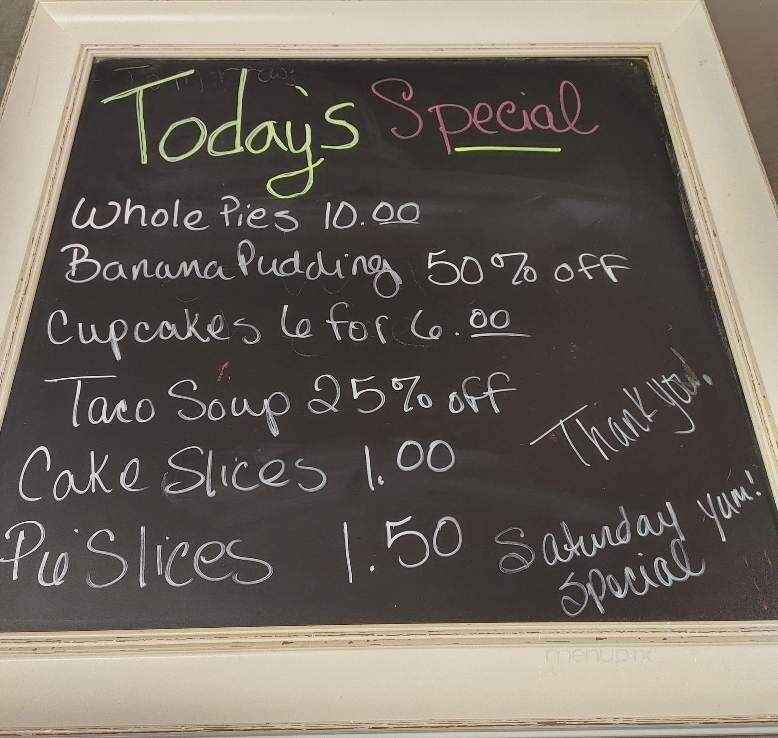 Today's Special
Whole Pies 10.00
Banana Pudding 50% off
Cupcakes 6 for 6.00
Taco Soup 25% off
Thank you.
Cake Slices 1.00
Pie Slices 1.50
Saturday Yum!
Special
menupix